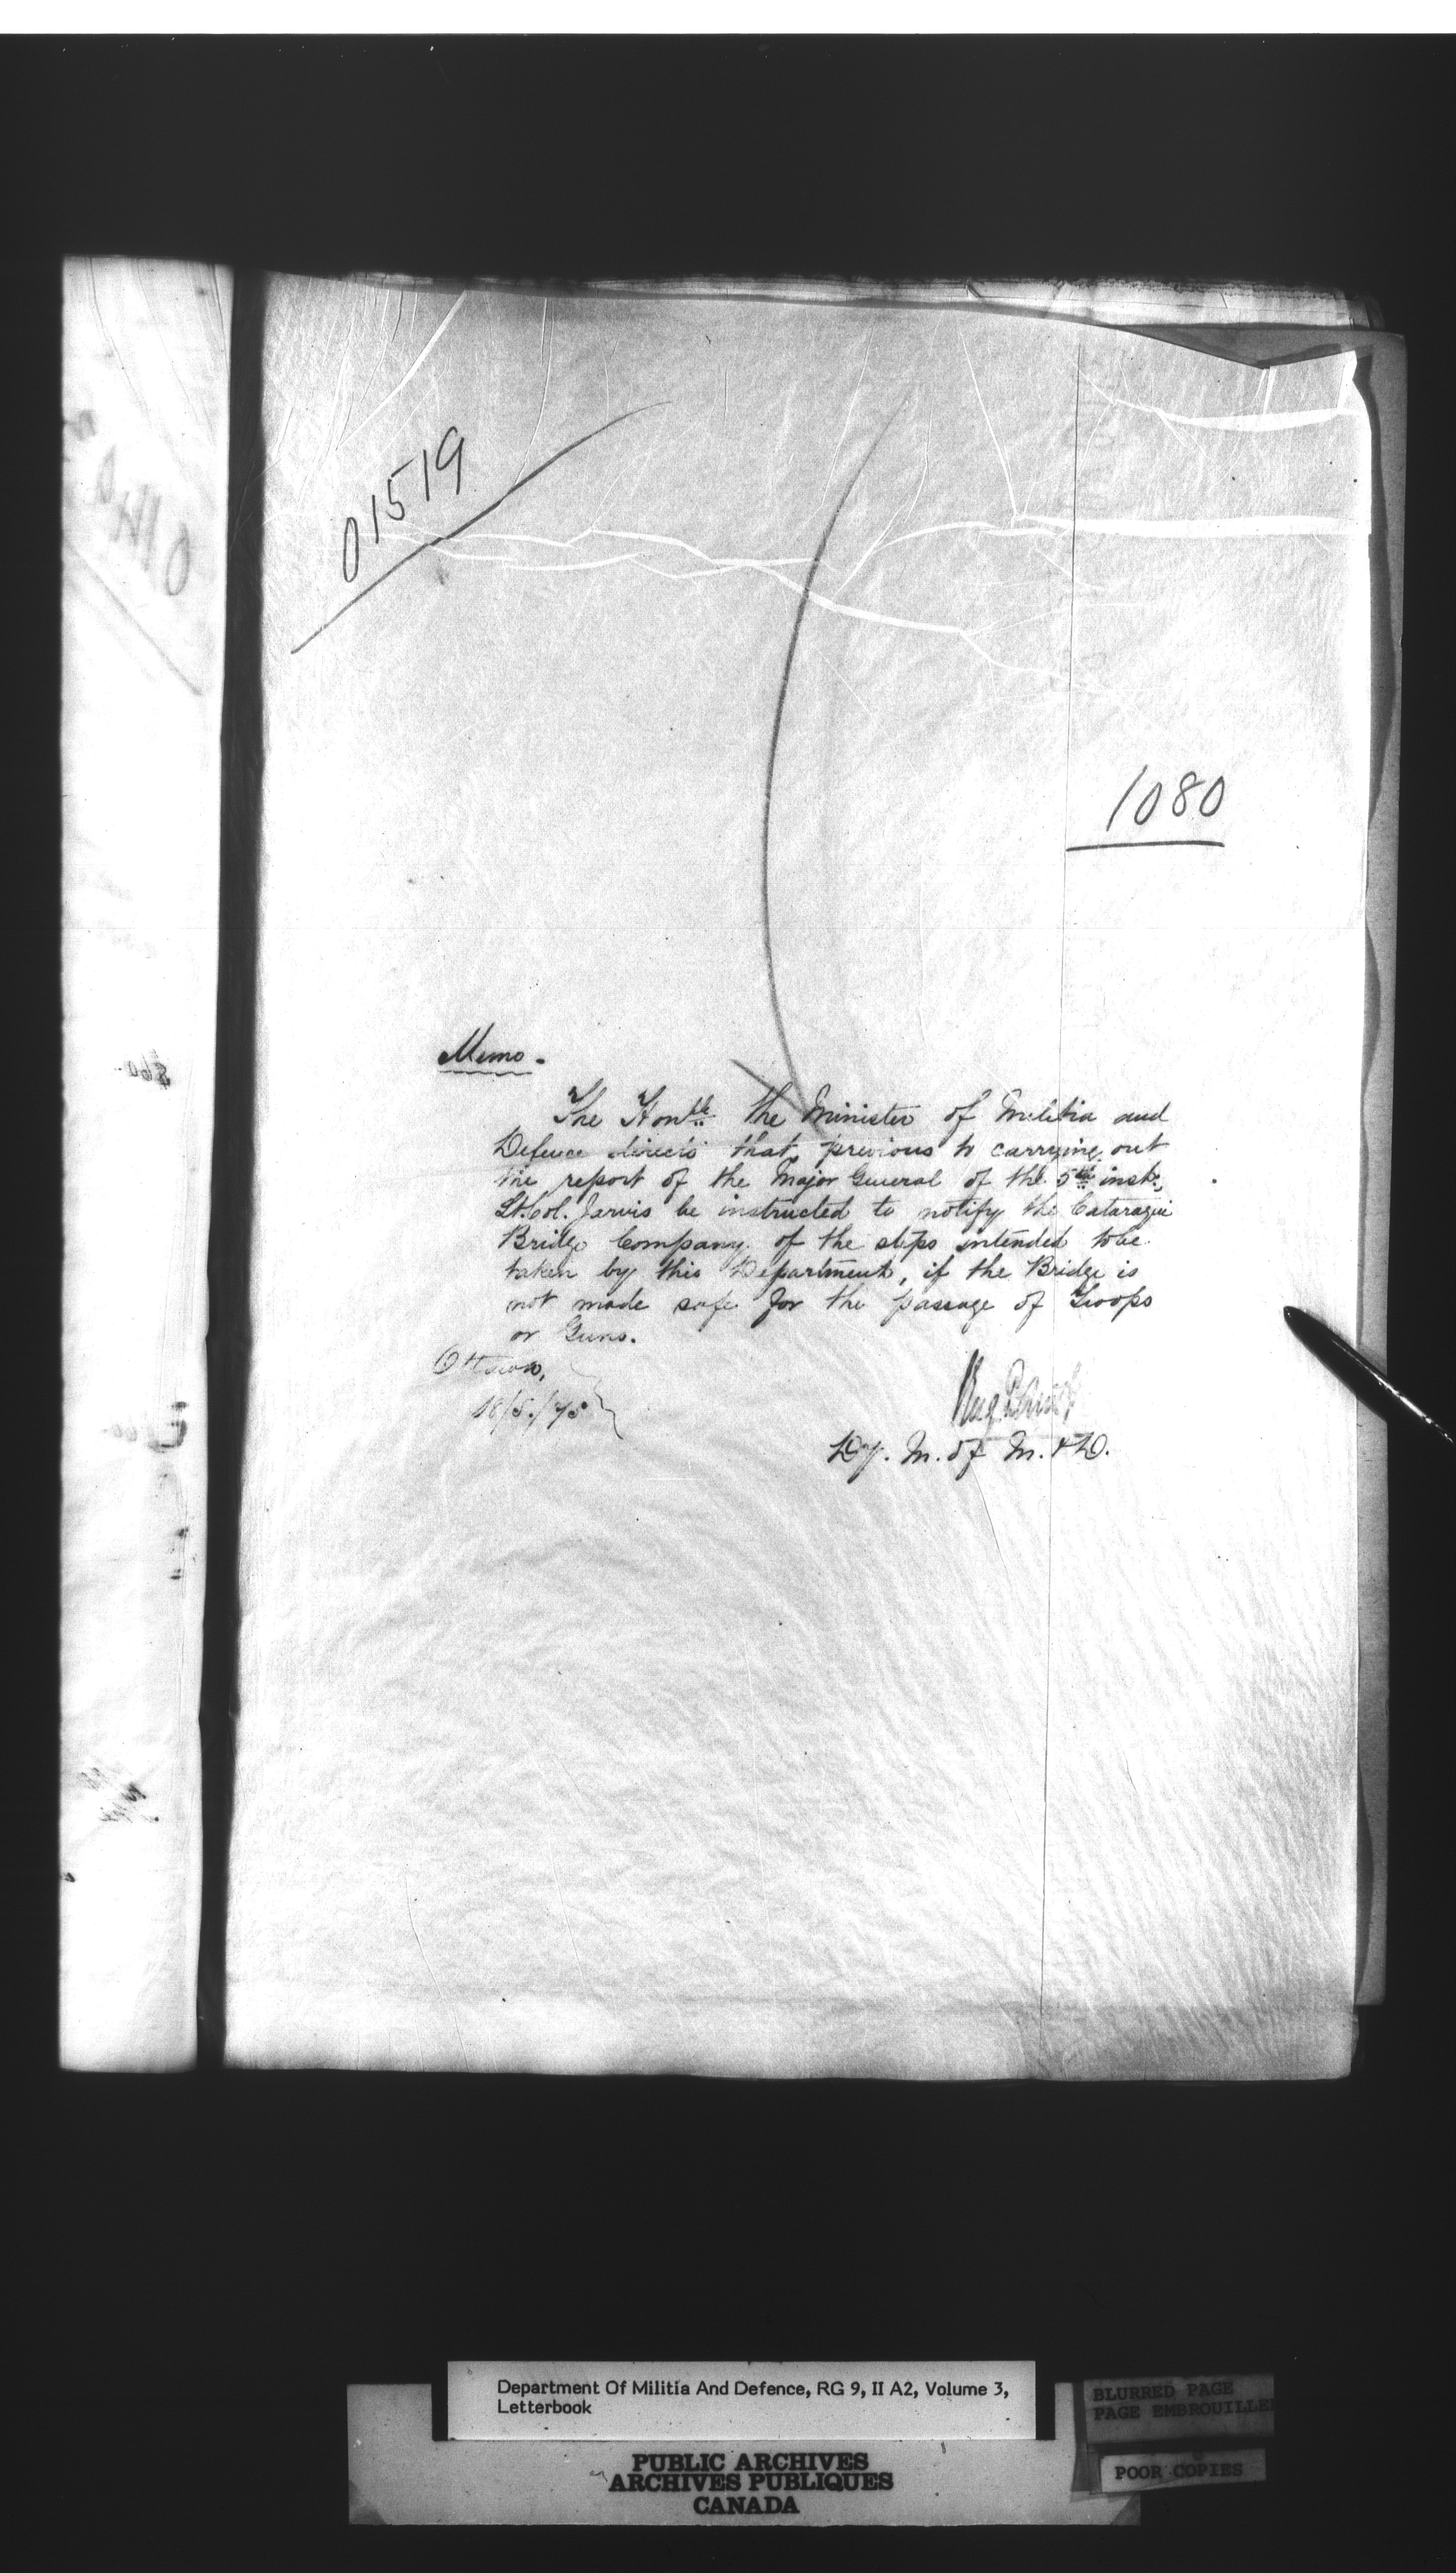 01519
1080
Memo.
The Honble the Minister of Militia and
Defence directs that, previous to carrying out
the report of the Major General of the 5th inst.,
Lt. Col. Jarvis be instructed to notify the Cataraqui
Bridge Company of the steps intended to be
taken by this Department, if the Bridge is
not made safe for the passage of Troops
or Guns.
Ottawa,
18/5/75
Dy. M. of M. & D.
Department Of Militia And Defence, RG 9, II A2, Volume 3,
Letterbook
BLURRED PAGE
PAGE EMBROUILLEE
POOR COPIES
PUBLIC ARCHIVES
ARCHIVES PUBLIQUES
CANADA